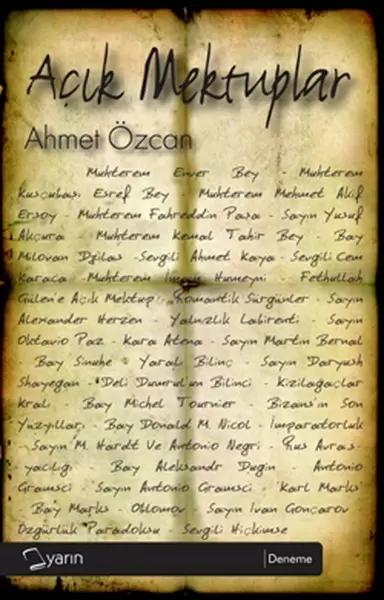 Açık Mektuplar
Ahmet Özcan
Muhterem Enver Bey - Muhterem
Kuşçubaşı Eşref Bey - Muhterem Mehmet Akif
Ersoy - Muhterem Fahreddin Paşa - Sayın Yusuf
Akçura - Muhterem Kemal Tahir Bey - Bay
Milovan Djilas - Sevgili Ahmet Kaya - Sevgili Cem
Karaca - Muhterem İmam Humeyni - Fethullah
Gülen'e Açık Mektup - Romantik Sürgünler - Sayın
Alexander Herzen - Yalnızlık Labirenti - Sayın
Oktavio Paz - Kara Atena - Sayın Martin Bernal
- Bay Sinuhe - Yaralı Bilinç - Sayın Daryush
Shayegan - Deli Dumrul'un Bilinci - Kızılağaçlar
Kralı - Bay Michel Tournier - Bizans'ın Son
Yüzyılları - Bay Donald M. Nicol - İmparatorluk
- Sayın M. Hardt Ve Antonio Negri - Rus Avras-
yacılığı - Bay Aleksandr Dugin - Antonio
Gramsci - Sayın Antonio Gramsci - 'Karl Marks'
- Bay Marks - Oblomov - Sayın Ivan Gonçarov
Özgürlük Paradoksu - Sevgili Hiçkimse
yarın
Deneme